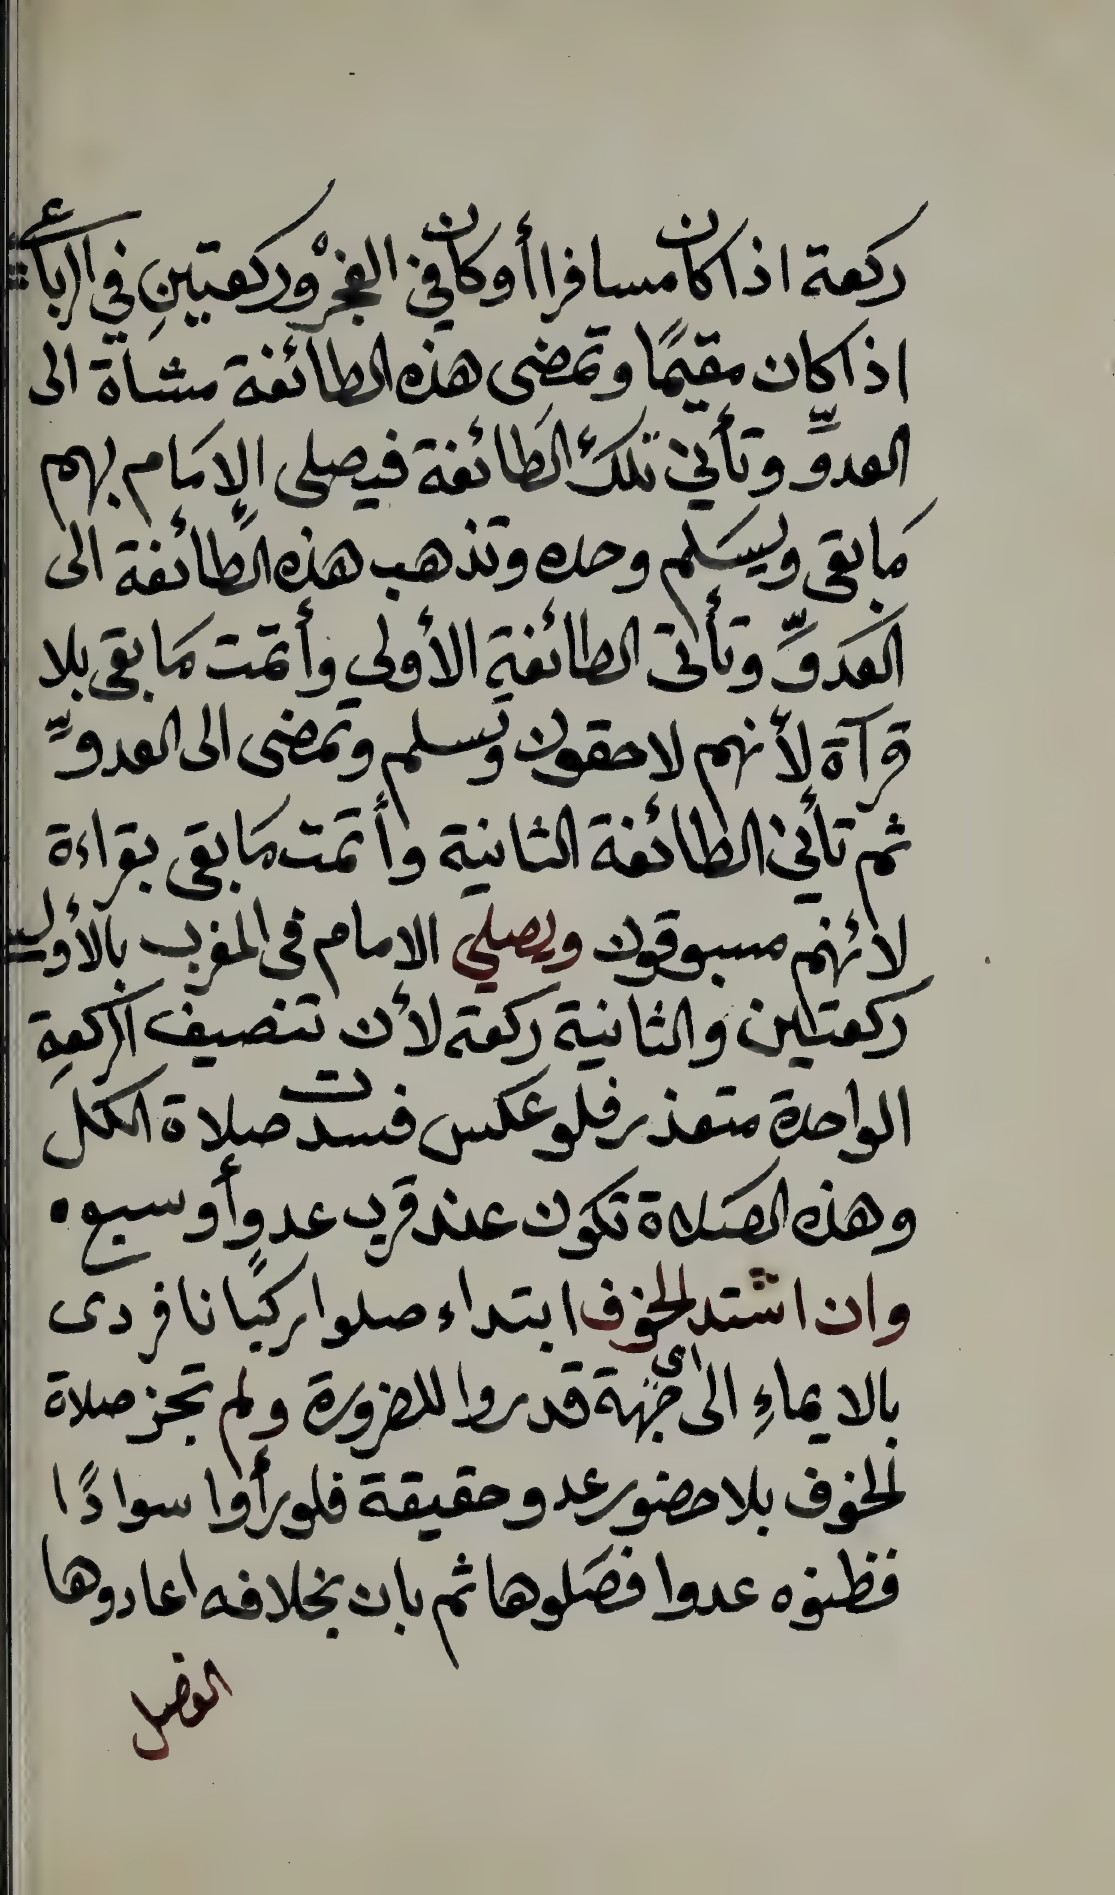 ركعة اذا كان مسافرا أو كان في الفجر وركعتين في الرباعية
اذا كان مقيمًا وتمضى هذه الطائفة مشاة الى
العدوّ وتأتي تلك الطائفة فيصلى الإمام بهم
ما بقى ويسلم وحده وتذهب هذه الطائفة الى
العدوّ وتأتى الطائفة الأولى وأتمت ما بقى بلا
قرآة لأنهم لاحقون وتسلم وتمضى الى العدوّ
ثم تأتي الطائفة الثانية وأتمت ما بقى بقراءة
لأنهم مسبوقون ويصلي الامام فى المغرب بالأولى
ركعتين والثانية ركعة لأن تنصيف الركعة
الواحدة متعذر فلو عكس فسدت صلاة الكل
وهذه الصلاة تكون عند قرب عدو أو سبع
وان اشتد الخوف ابتداء صلوا ركبًانا فردى
بالايماءِ الى اى جهة قدروا للضرورة ولم تجز صلاة
الخوف بلا حضور عدو حقيقة فلو رأوا سوادًا
فظنوه عدوا فصلوها ثم بان بخلافه اعادوها
الفصل